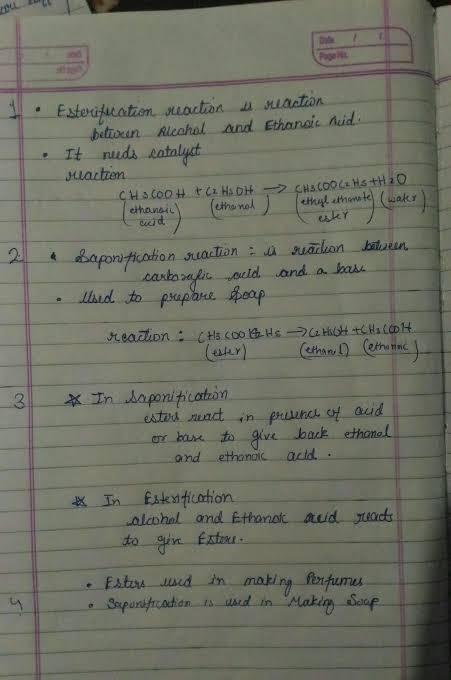 Date / /
Page No.
1 • Esterification reaction is reaction
between Alcohol and Ethanoic Acid.
• It needs catalyst
reaction
CH3COOH + C2H5OH → CH3COOC2H5 + H2O
(ethanoic acid) (ethanol) (ethyl ethanoate ester) (water)
2 • Saponification reaction : is reaction between
carboxylic acid and a base
• Used to prepare Soap
reaction : CH3COOC2H5 → C2H5OH + CH3COOH
(ester) (ethanol) (ethanoic)
3 * In Saponification
esters react in presence of acid
or base to give back ethanol
and ethanoic acid.
* In Esterification
alcohol and Ethanoic acid reacts
to give Esters.
• Esters used in making Perfumes
4 • Saponification is used in Making Soap